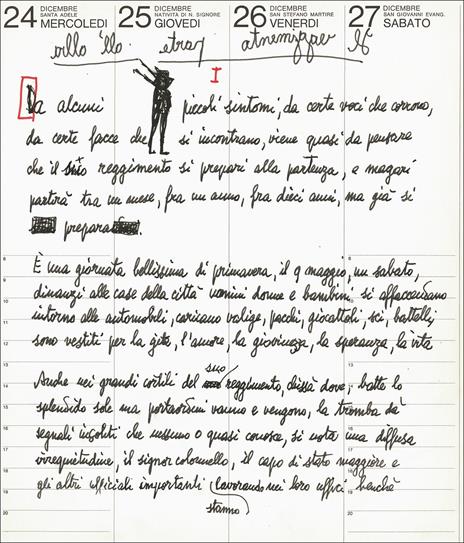 24 DICEMBRE SANTA ADELE MERCOLEDI
25 DICEMBRE NATIVITA DI N. SIGNORE GIOVEDI
26 DICEMBRE SAN STEFANO MARTIRE VENERDI
27 DICEMBRE SAN GIOVANNI EVANG. SABATO
etrap
I
Da alcuni piccoli sintomi, da certe voci che corrono,
da certe facce che si incontrano, viene quasi da pensare
che il reggimento si prepari alla partenza, e magari
partirà tra un mese, fra un anno, fra dieci anni, ma già si
prepara.
È una giornata bellissima di primavera, il 9 maggio, un sabato,
dinanzi alle case della città uomini donne e bambini si affaccendano
intorno alle automobili, caricano valige, pacchi, giocattoli, sci, battelli,
sono vestiti per la gita, l'amore, la giovinezza, la speranza, la vita
Anche nei grandi cortili del suo reggimento, chissà dove, batte lo
splendido sole ma portaordini vanno e vengono, la tromba dà
segnali insoliti che nessuno o quasi conosce, si nota una diffusa
irrequietudine, il signor colonnello, il capo di stato maggiore e
gli altri ufficiali importanti lavorando nei loro uffici benchè
stanno
8
9
10
11
12
13
14
15
16
17
18
19
20